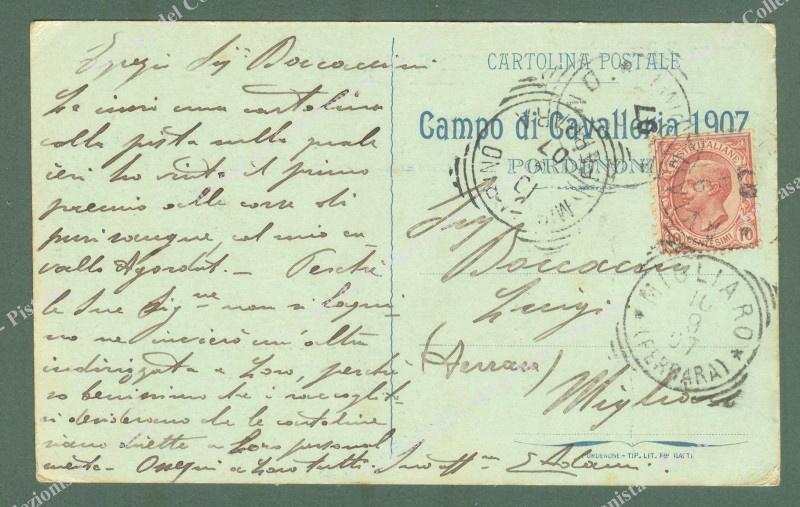 Egregio Sig Boccaccini
Le invio una cartolina
colla pista nella quale
ieri ho vinto il primo
premio alle corse di
puri sangue, col mio ca-
vallo Agordat. - Perchè
le Sue Sig.ne non si lagni-
no ne invierò un'altra
indirizzata a Loro, perchè
so benissimo che i raccogli-
ri desiderano che le cartoline
siano dirette a Loro personal
mente. Ossequi a Loro tutti. Suo aff.mo E Adami.
CARTOLINA POSTALE
Campo di Cavalleria 1907
PORDENONE
Sig
Boccaccini
Luigi
(Ferrara)
Migliaro
POSTE ITALIANE
CENTESIMI 10
MIGLIARO
10
8
07
(FERRARA)
PORDENONE - TIP. LIT. F.lli GATTI